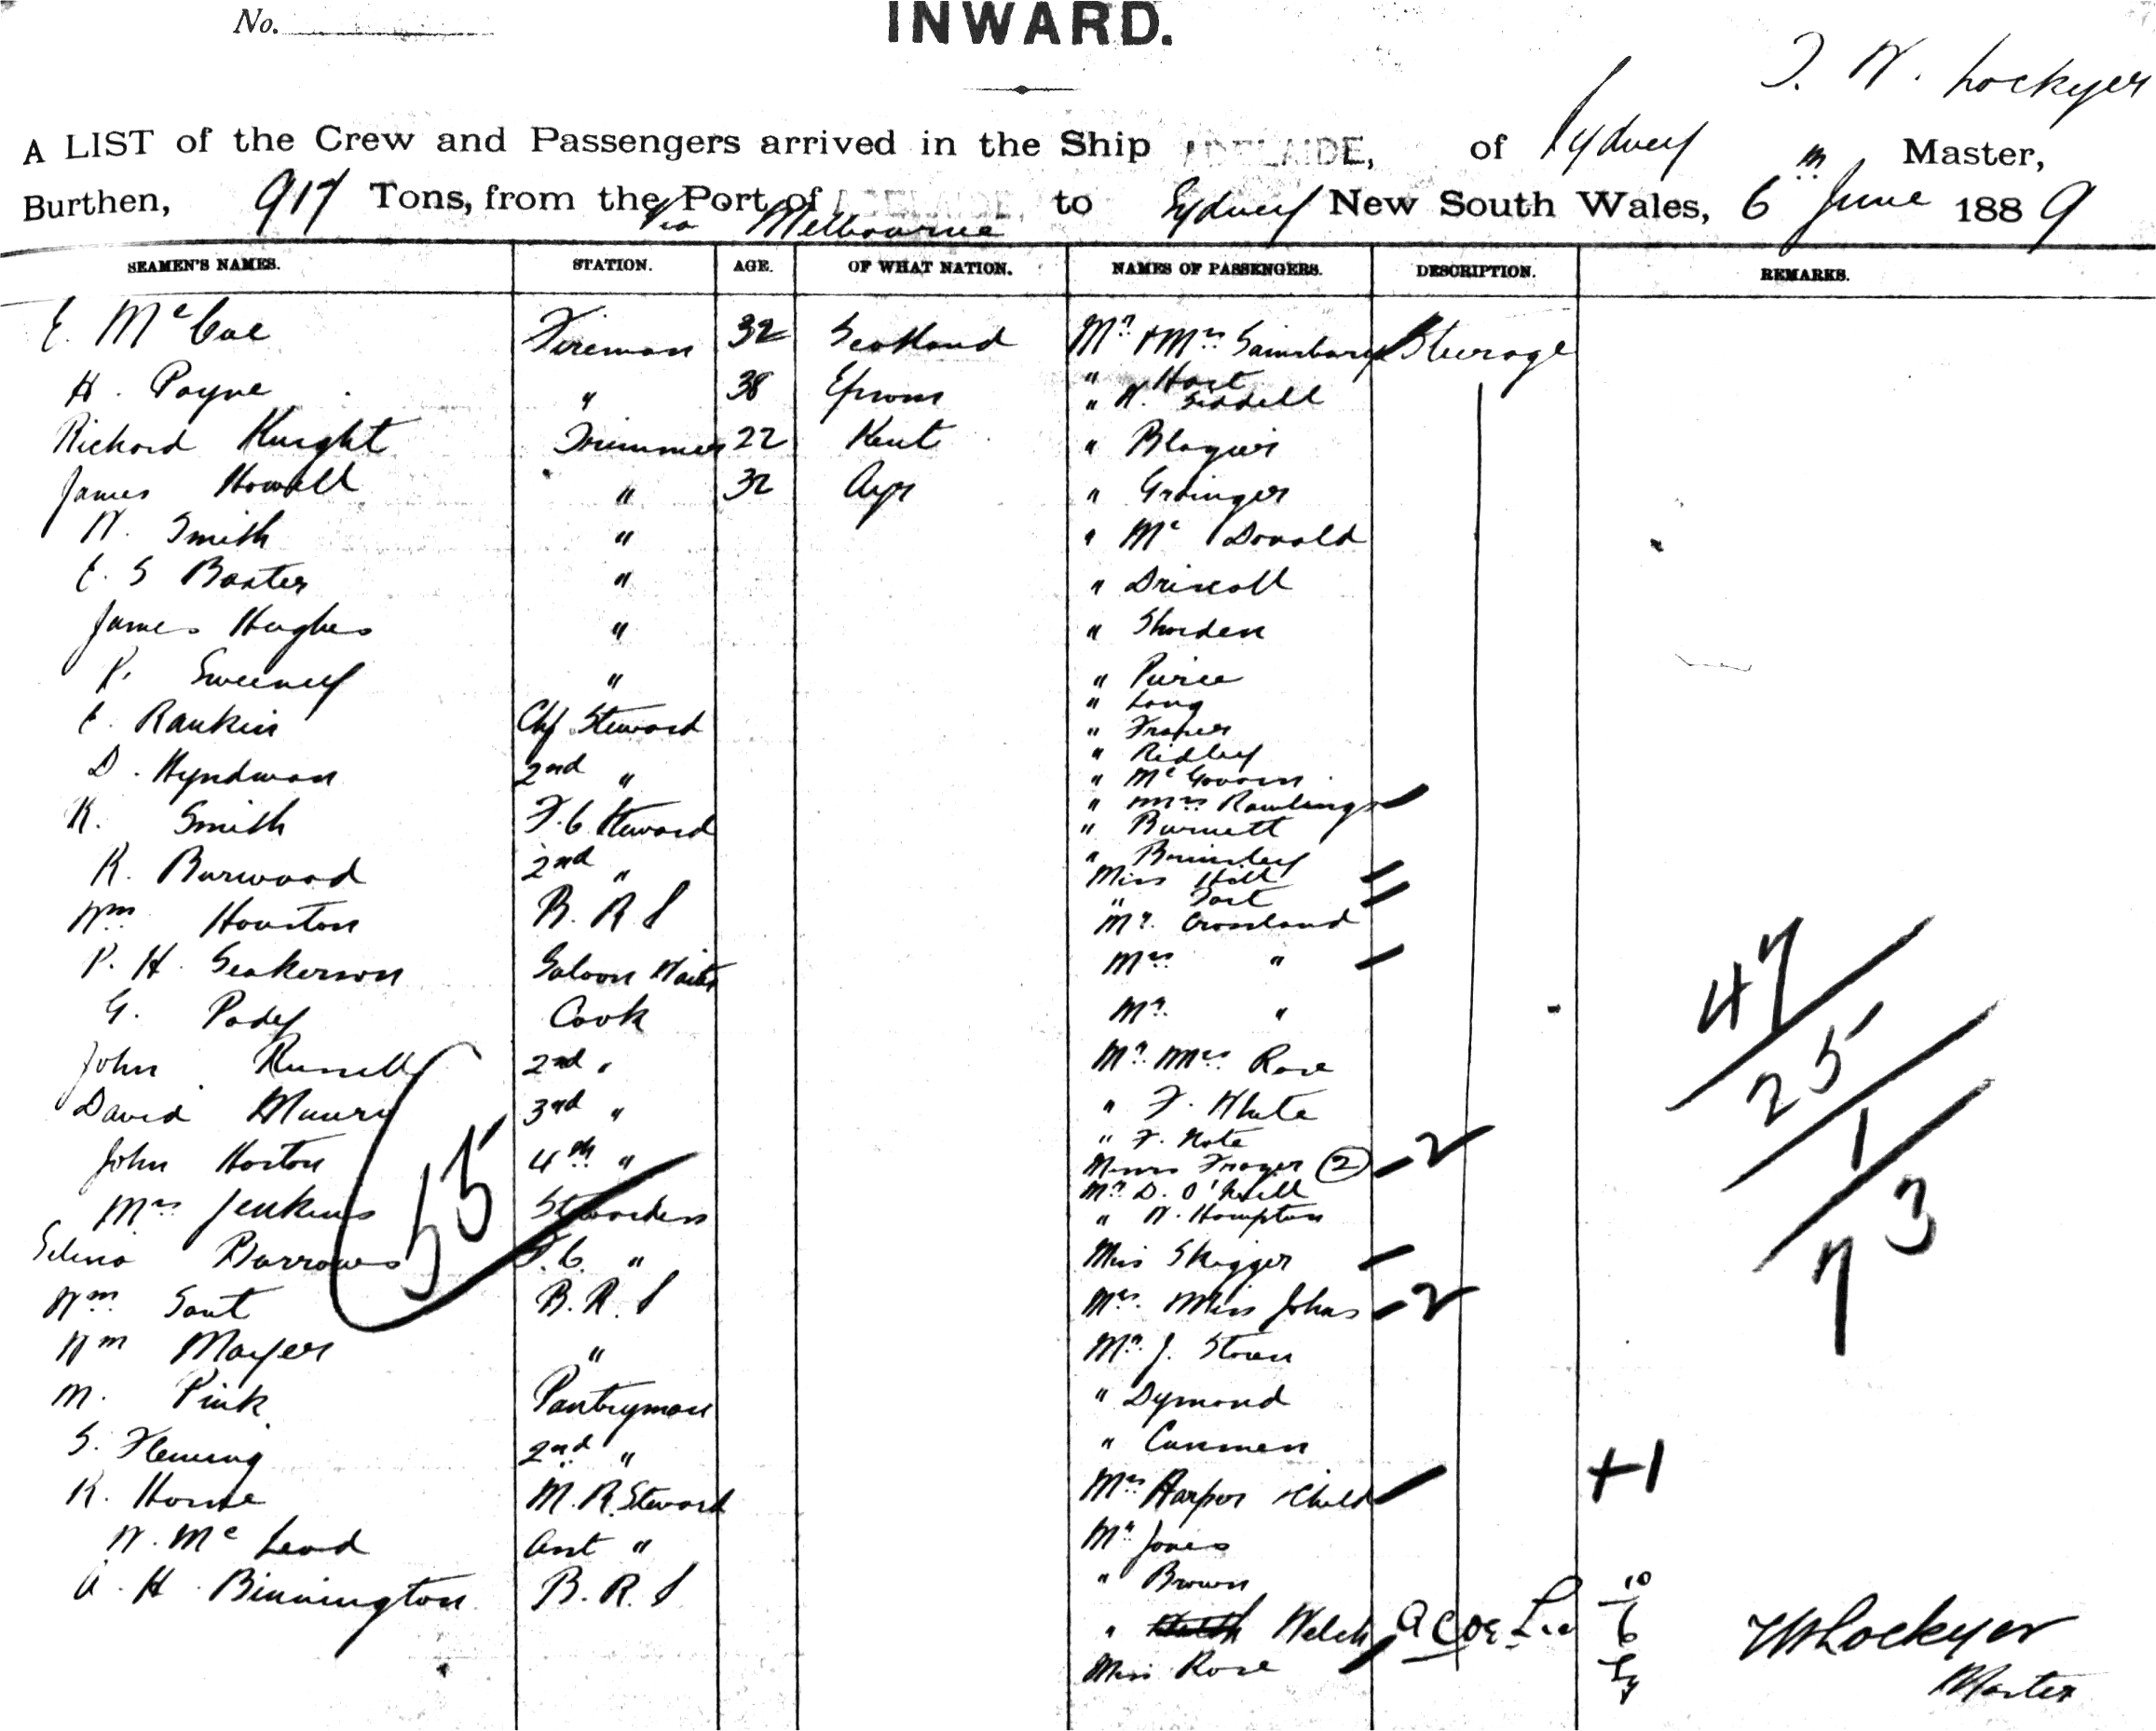 No.
INWARD.
T. W. Lockyer
A LIST of the Crew and Passengers arrived in the Ship ADELAIDE, of Sydney Master,
Burthen, 917 Tons, from the Port of ADELAIDE to Sydney New South Wales, 6 June 1889
Via Melbourne
SEAMEN'S NAMES. STATION. AGE. OF WHAT NATION. NAMES OF PASSENGERS. DESCRIPTION. REMARKS.
E. McCue Fireman 32 Scotland Mr & Mrs Sainsbury Steerage
H. Payne " 38 Epsom " Hart
" W. Siddell
Richard Knight Trimmer 22 Kent " Blaquier
James Howall " 32 Ayr " Grainger
W. Smith " " Mc Donald
E. S Baxter " " Driscoll
James Hughes " " Shorden
P. Sweeney " " Pierce
" Long
E. Rankin Chf Steward " Fraser
" Ridley
D. Hyndman 2nd " " McGovern
" Mrs Rawlings
R. Smith F.C. Steward " Burnett
" Brinsley
R. Burwood 2nd " Miss Hill
"
Wm Houston B. R S Mr. Crossland
P. H. Seakerson Saloon Waiter Mrs "
G. Pody Cook Mr. "
47
25
1
73
John Russell 2nd " Mr. Mrs Rose
David Munro 3rd " " F. White
" F. Note
John Horton 4th " Misses Frazer (2) - 2
Mr D. O'Neill
Mrs Jenkins Stewardess " W. Hampton
55
Selina Barrows F.C. " Miss Skigger
Wm Gant B. R. S Mrs. Miss Johns - 2
Wm Mayer " Mr. J. Stoen
M. Pink Pantryman " Dymond
S. Fleming 2nd " " Cunmen
R. Horne M.R. Steward Mrs Harper & Child +1
W. Mc Leod Asst " Mr Jones
A. H. Binnington B. R. S " Brown
" Welch
Miss Rose
10
6
6
TWLockyer
Master